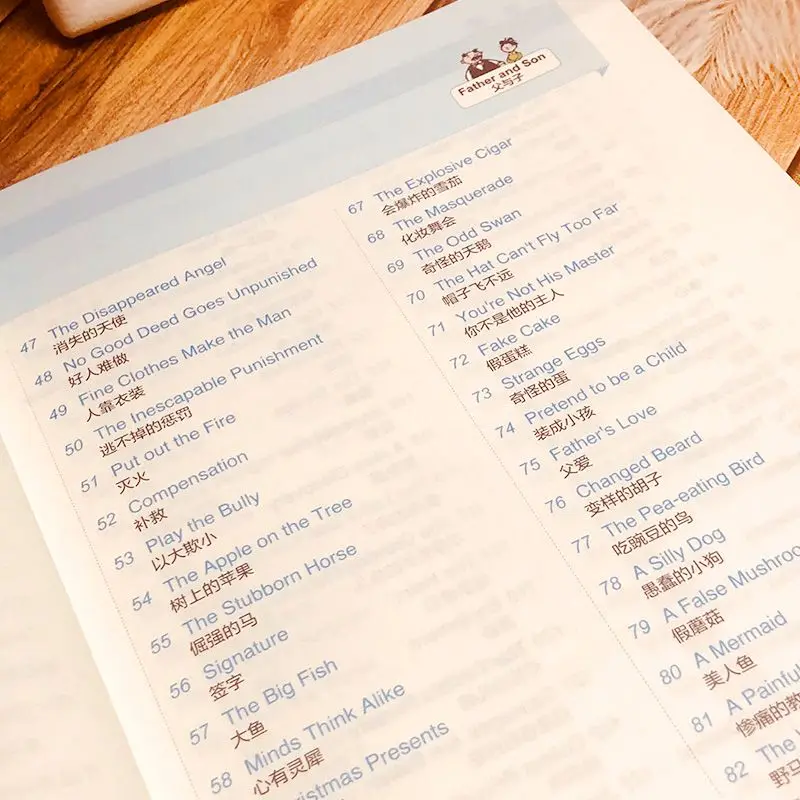 Father and Son
父与子
47 The Disappeared Angel
消失的天使
48 No Good Deed Goes Unpunished
好人难做
49 Fine Clothes Make the Man
人靠衣装
50 The Inescapable Punishment
逃不掉的惩罚
51 Put out the Fire
灭火
52 Compensation
补救
53 Play the Bully
以大欺小
54 The Apple on the Tree
树上的苹果
55 The Stubborn Horse
倔强的马
56 Signature
签字
57 The Big Fish
大鱼
58 Minds Think Alike
心有灵犀
Presents
67 The Explosive Cigar
会爆炸的雪茄
68 The Masquerade
化妆舞会
69 The Odd Swan
奇怪的天鹅
70 The Hat Can't Fly Too Far
帽子飞不远
71 You're Not His Master
你不是他的主人
72 Fake Cake
假蛋糕
73 Strange Eggs
奇怪的蛋
74 Pretend to be a Child
装成小孩
75 Father's Love
父爱
76 Changed Beard
变样的胡子
77 The Pea-eating Bird
吃豌豆的鸟
78 A Silly Dog
愚蠢的小狗
79 A False Mushroo
假蘑菇
80 A Mermaid
美人鱼
81 A Painful
惨痛的教
82 The
野马